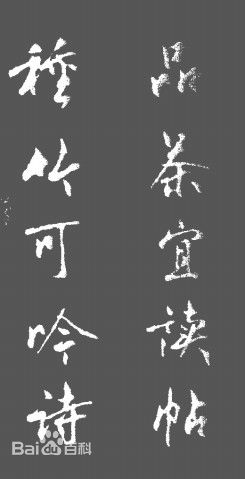 品茶宜读帖
种竹可吟诗
Bai百科